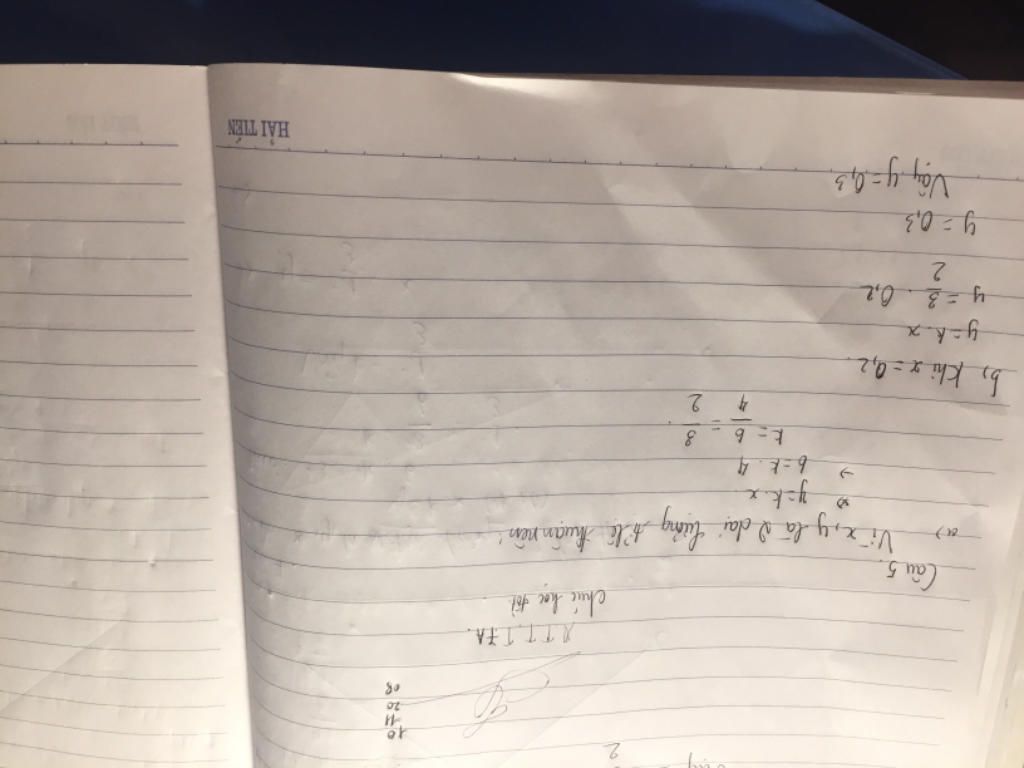 10
11
20
08
Chúc học tốt
Câu 5.
a) Vì x, y là 2 đại lượng tỉ lệ thuận nên:
⇒ y = k. x
→ 6 = k. 4
k = 6/4 = 3/2.
b, Khi x = 0,2.
y = k. x
y = 3/2 . 0,2
y = 0,3
Vậy y = 0,3
HẢI TIẾN